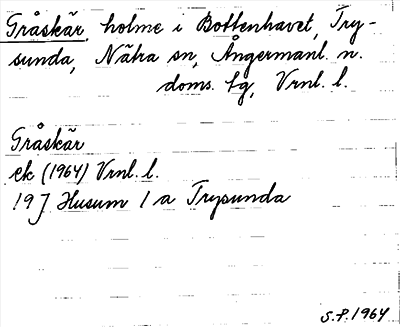 Gråskär, holme i Bottenhavet, Try-
sunda, Nätra sn, Ångermanl. n.
doms. tg, Vrnl. l.
Gråskär
ek (1964) Vrnl. l.
19 J Husum 1 a Trysunda
S.P. 1964